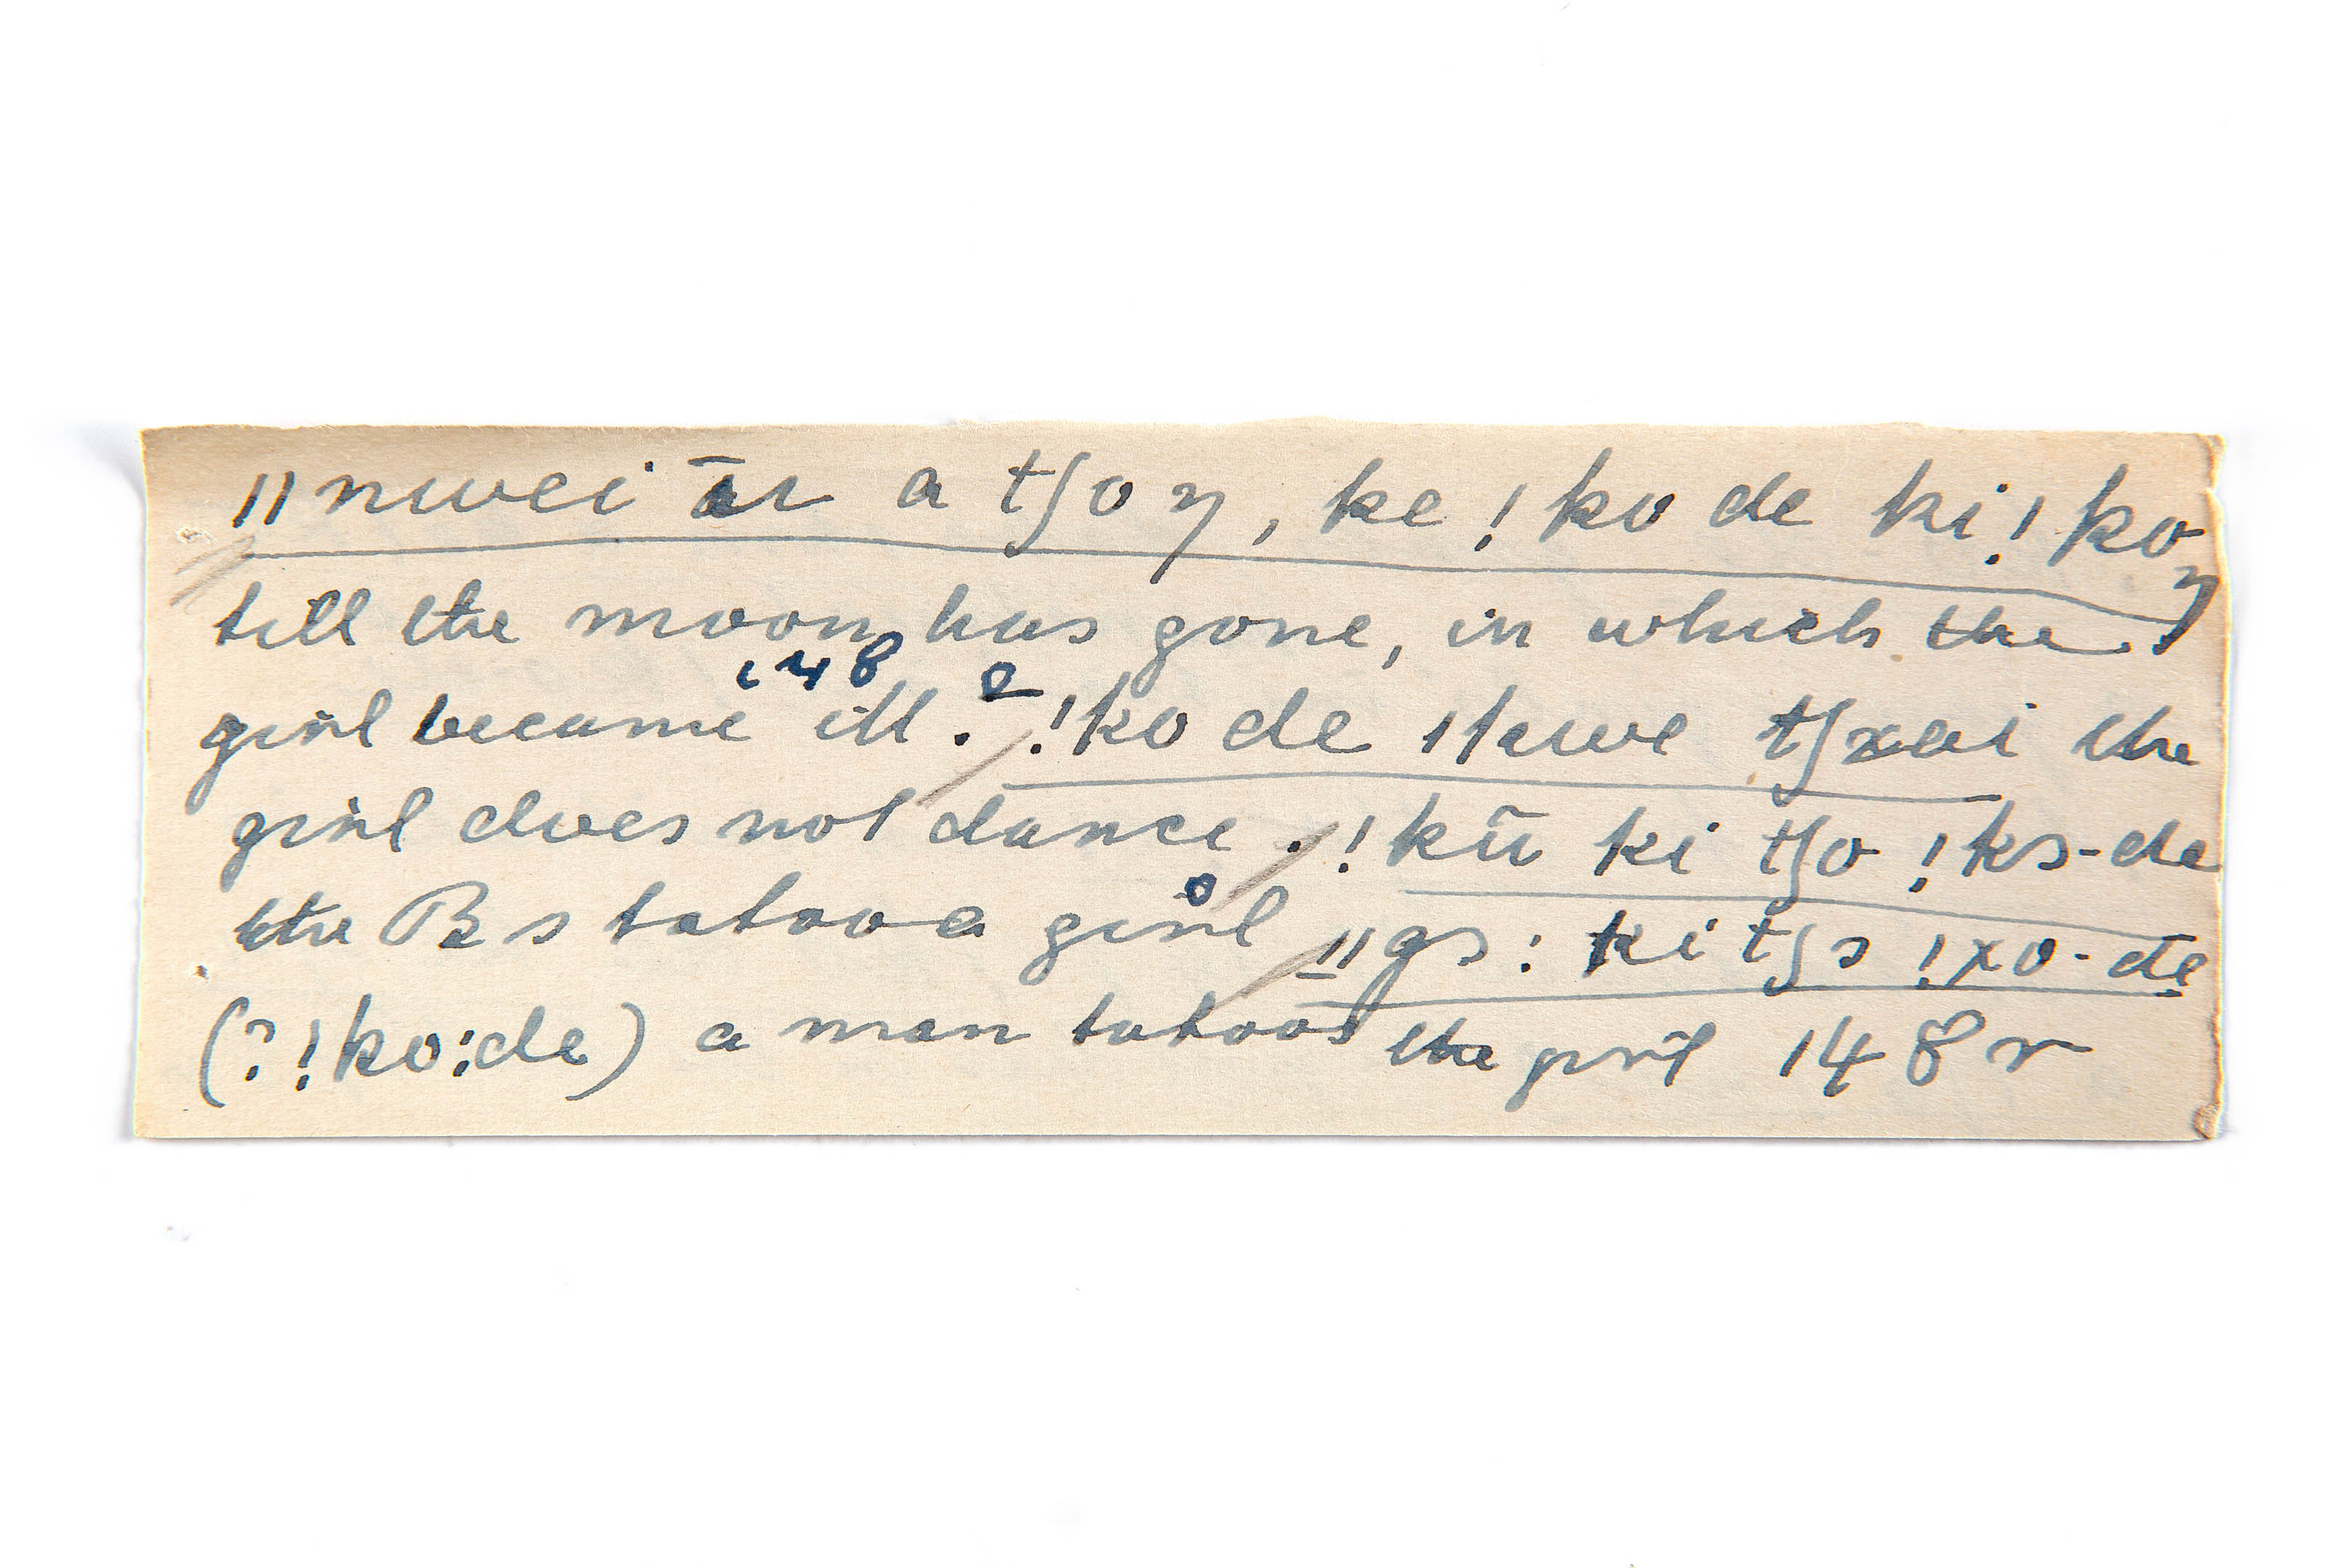 ǁnwei āι a tʃoŋ, ke !ko de ki !koŋ
till the moon has gone, in which the
148 e
girl became ill. !ko de ǀkuwe tʃxai the
girl does not dance. !kũ ki tʃo !kɔ-de
the Bs tatooe girl ǁgɔ: ki tʃɔ !xo-de
(? !ko:de) a man tatoos the girl 148 r